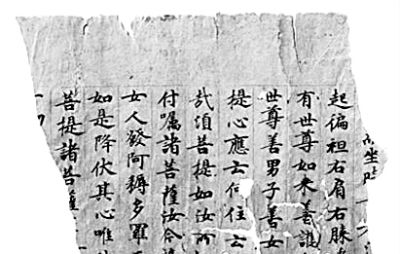 坐時
起偏袒右肩右膝
有世尊如來善護
世尊善男子善女
提心應云何住云
哉須菩提如汝所
付囑諸菩薩汝今
女人發阿耨多羅
如是降伏其心唯
菩提諸菩薩